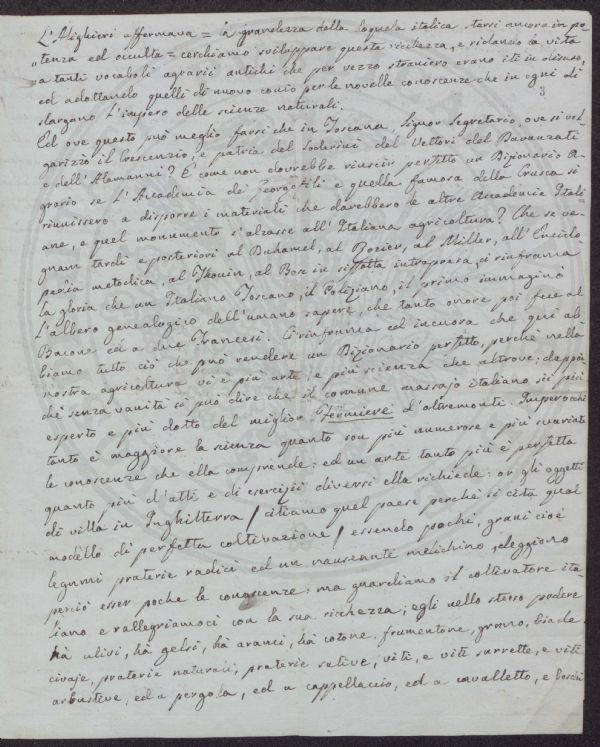 L'Alighieri affermava = la grandezza della loquela italica starsi ancora in po-
"tenza ed occulta = cerchiamo sviluppare questa ricchezza, e ridando la vita
a tanti vocaboli agrarii antichi che per vezzo straniero erano iti in disuso,
ed adottando quelli di nuovo conio per le novelle conoscenze che in ogni dì
3
slargano l'impero delle scienze naturali.
Ed ove questo può meglio farsi che in Toscana, Signor Segretario, ove si vol-
garizzò il Crescenzio, e patria del Soderini del Vettori del Davanzati
e dell'Alamanni? E come non dovrebbe riuscir perfetto un Dizionario A-
grario se l'Accademia de' Georgofili e quella famosa della Crusca si
riunissero a disporre i materiali che darebbero le altre Accademie Itali-
ane, e quel monumento s'alzasse all'Italiana agricoltura? Che se ve-
gnam tardi e posteriori al Duhamel, al Rozier, al Miller, all'Enciclo-
pedia metodica, al Thouin, al Bosc in siffatta intrapresa, ci rinfranca
la gloria che un Italiano Toscano, il Poliziano, il primo immaginò
l'albero genealogico dell'umano sapere, che tanto onore poi fece al
Bacone ed a due Francesi. C'rinfranca ed incuora che qui ab-
biamo tutto ciò che può rendere un Dizionario perfetto, perchè nella
nostra agricoltura vi è più arte, e più scienza che altrove; dappoi-
chè senza vanità si può dire che il comune massajo italiano sii più
esperto e più dotto del miglior Fermiere d'oltremonte. Imperocchè
tanto è maggiore la scienza quanto son più numerose e più svariate
le conoscenze che ella comprende: ed un'arte tanto più è perfetta
quanto più d'atti e di esercizii diversi ella richiede: or gli oggetti
di villa in Inghilterra / citiamo quel paese perchè si cita qual
modello di perfetta coltivazione / essendo pochi, grani cioè
legumi praterie radici ed un nauseante melichino seleggiono
perciò esser poche le conoscenze: ma guardiamo il coltivatore ita-
liano e rallegriamoci con la sua ricchezza; egli nello stesso podere
hà ulivi, hà gelsi, hà aranci, hà cotone, frumentone, grano, biade
civaje, praterie naturali, praterie sative, viti, e viti surrette, e viti
arbustive, ed a pergola, ed a cappellaccio, ed a cavalletto, e boschi